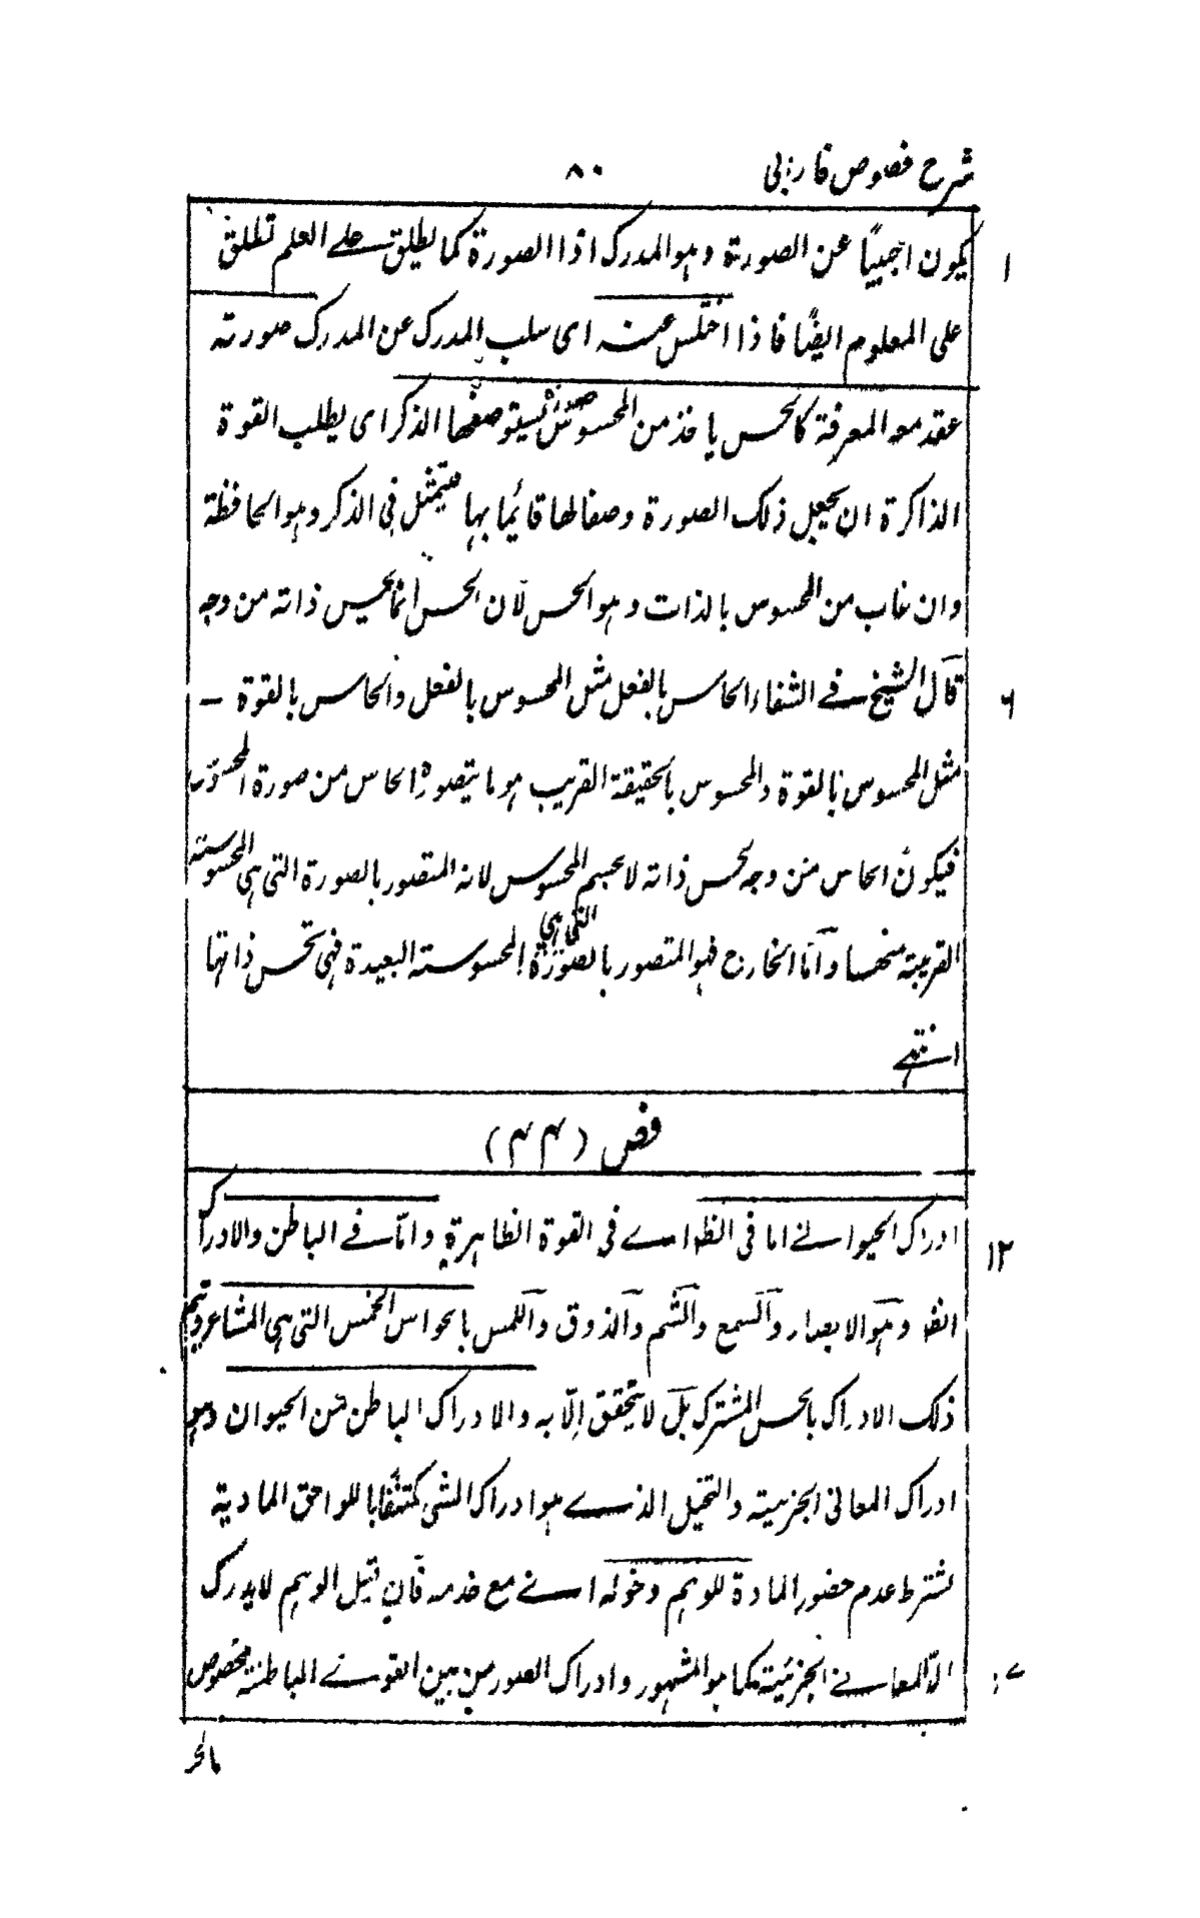 شرح فصوص فارابی ۸۰
یکون اجنبیًا عن الصورة وہو المدرک اذا الصورة کما یطلق علے العلم تطلق ۱
علی المعلوم ایضًا فاذا اختلس عنہ ای سلب المدرک عن المدرک صورتہ
عقد معہ المعرفة کالحس یاخذ من المحسوس صورة یستوصفها الذکر ای یطلب القوة
الذاکرة ان یجعل ذلک الصورة وصفا لها قائما بہا فیتمثل فی الذکر وہو الحافظة
وان غاب من المحسوس بالذات وہو الحس لان الحس انما یحس ذاتہ من وجہ
قال الشیخ فے الشفاء الحاس بالفعل مثل المحسوس بالفعل والحاس بالقوة – ۶
مثل المحسوس بالقوة والمحسوس بالحقیقة القریب ہو ما یتصور بہ الحاس من صورة المحسوس
فیکون الحاس من وجہ یحس ذاتہ لا جسم المحسوس لانہ المتصور بالصورة التی ہی المحسوستہ
القریبتہ منها واما الخارج فہو المتصور بالصورة التی ہی المحسوستہ البعیدة فہی تحس ذاتها
انتہے
فص (۴۴)
ادراک الحیوانے اما فی الظ اے فی القوة الظاہرة واما فے الباطن والادراک ۱۲
الظ وہو الابصار والسمع والشم والذوق واللمس بالحواس الخمس التی ہی المشاعر ویتم
ذلک الادراک بالحس المشترک بل لا یتحقق إلّا بہ والادراک الباطن من الحیوان وہو
ادراک المعانی الجزئیتہ والتخیل الذے ہو ادراک الشی مکتنفًا باللواحق المادیة
بشترط عدم حضور المادة للوہم وخولہ اے مع خدمہ فان قیل الوہم لا یدرک
الّا المعانے الجزئیة کما ہو المشہور وادراک الصور من بین القوے الباطنة مخصوص
بالحس